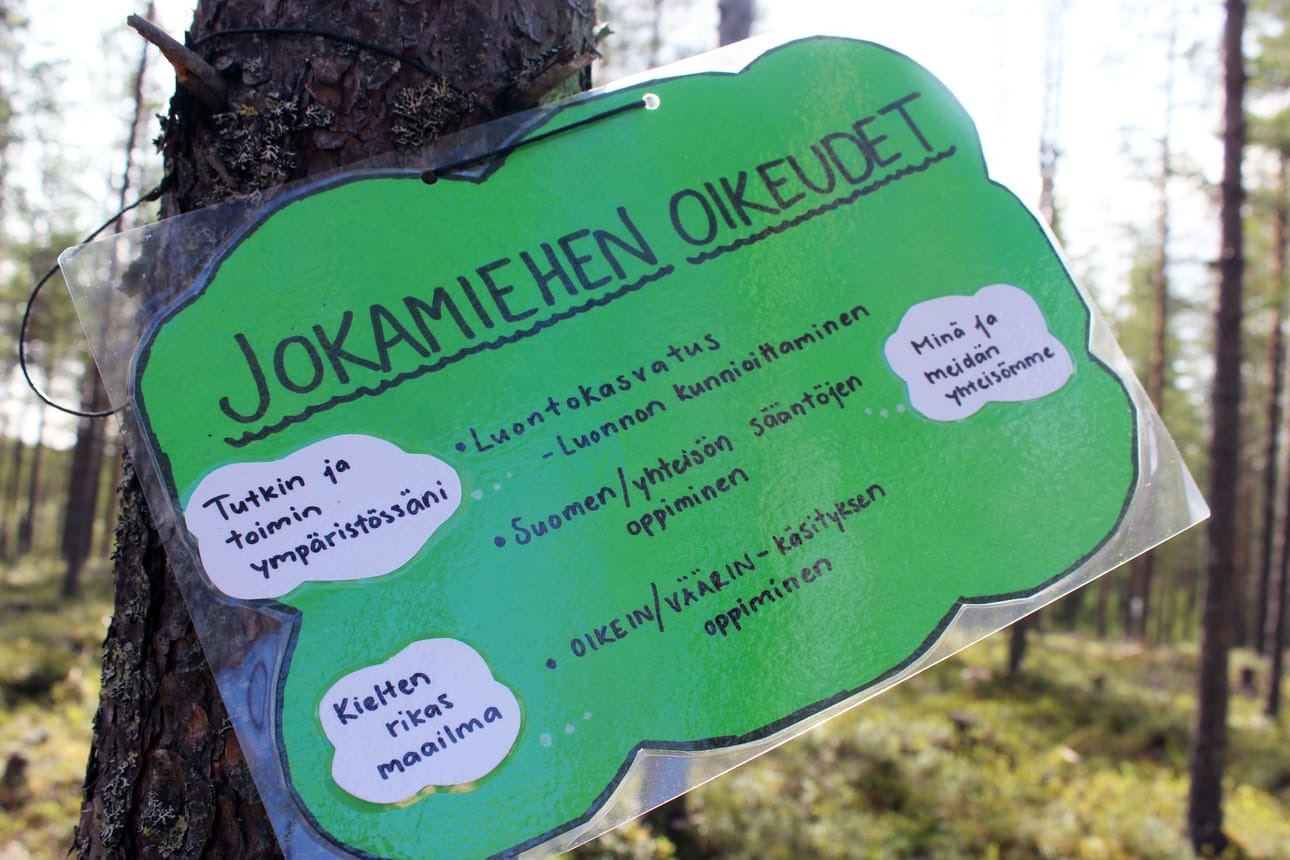 JOKAMIEHEN OIKEUDET
• Luontokasvatus
- Luonnon kunnioittaminen
• Suomen/yhteisön sääntöjen
oppiminen
• OIKEIN/VÄÄRIN - käsityksen
oppiminen
Minä ja
meidän
yhteisömme
Tutkin ja
toimin
ympäristössäni
Kielten
rikas
maailma